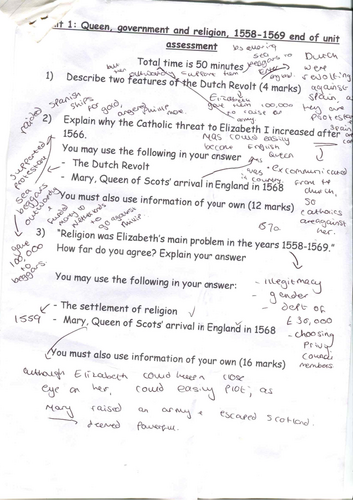 it 1: Queen, government and religion, 1558-1569 end of unit
assessment
Total time is 50 minutes
1) Describe two features of the Dutch Revolt (4 marks)
2) Explain why the Catholic threat to Elizabeth I increased after
1566.
You may use the following in your answer
- The Dutch Revolt
- Mary, Queen of Scots' arrival in England in 1568
You must also use information of your own (12 marks)
3) "Religion was Elizabeth's main problem in the years 1558-1569."
How far do you agree? Explain your answer
You may use the following in your answer:
- The settlement of religion
- Mary, Queen of Scots' arrival in England in 1568
You must also use information of your own (16 marks)
Dutch
were
revolting
against
Spain
they are
raided Spanish
ships
for gold,
sea
beggars
gave
100,000
to
beggars
excommunicated
so
catholics
her.
1570
- illegitimacy
- gender
- debt of
£ 30,000
- choosing
Privy
Council
members
1559
although Elizabeth could keep close
eye on her, could easily plot, as
Mary raised an army + escaped Scotland.
→ deemed powerful.